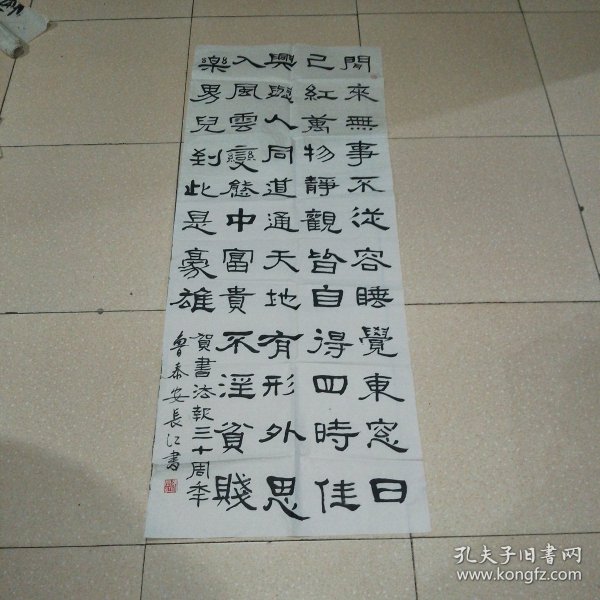 閒來無事不從容睡覺東窓日
已紅萬物靜觀皆自得四時佳
興與人同道通天地有形外思
入風雲變態中富貴不淫貧賤
樂男兒到此是豪雄
賀書法報三十周年
魯泰安長江書
孔夫子旧书网
www.kongfz.com